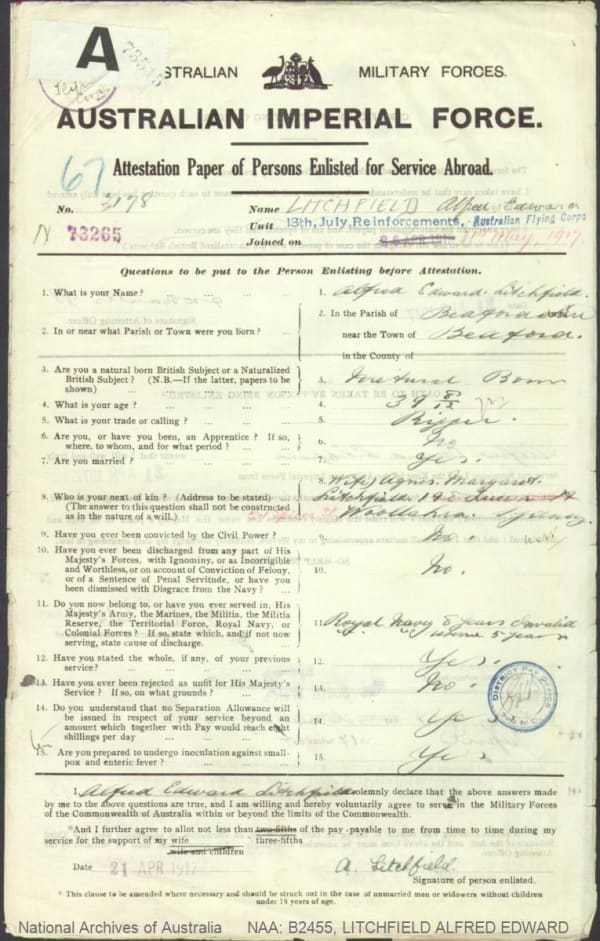 A
73515
AUSTRALIAN MILITARY FORCES.
AUSTRALIAN IMPERIAL FORCE.
Attestation Paper of Persons Enlisted for Service Abroad.
67
No. 3178 Name LITCHFIELD Alfred Edward
N 73265 Unit 13th, July, Reinforcements, Australian Flying Corps
Joined on 1st May, 1917
Questions to be put to the Person Enlisting before Attestation.
1. What is your Name? 1. Alfred Edward Litchfield.
2. In or near what Parish or Town were you born? 2. In the Parish of
near the Town of
in the County of
3. Are you a natural born British Subject or a Naturalized British Subject? (N.B.—If the latter, papers to be shown) 3. Natural Born
4. What is your age? 4. 39 8/12
5. What is your trade or calling? 5. Rigger.
6. Are you, or have you been, an Apprentice? If so, where, to whom, and for what period? 6. No
7. Are you married? 7. Yes.
8. Who is your next of kin? (Address to be stated) 8. (Wife) Agnes Margaret.
Litchfield. 140 Queen St
(The answer to this question shall not be constructed as in the nature of a will.) Woollahra. Sydney
9. Have you ever been convicted by the Civil Power? 9. No.
10. Have you ever been discharged from any part of His Majesty's Forces, with Ignominy, or as Incorrigible and Worthless, or on account of Conviction of Felony, or of a Sentence of Penal Servitude, or have you been dismissed with Disgrace from the Navy? 10. No.
11. Do you now belong to, or have you ever served in, His Majesty's Army, the Marines, the Militia, the Militia Reserve, the Territorial Force, Royal Navy, or Colonial Forces? If so, state which, and if not now serving, state cause of discharge. 11. Royal Navy 5 years invalid
5 years
12. Have you stated the whole, if any, of your previous service? 12. Yes.
13. Have you ever been rejected as unfit for His Majesty's Service? If so, on what grounds? 13. No.
14. Do you understand that no Separation Allowance will be issued in respect of your service beyond an amount which together with Pay would reach eight shillings per day 14. Yes
15. Are you prepared to undergo inoculation against small-pox and enteric fever? 15. Yes
I, Alfred Edward Litchfield do solemnly declare that the above answers made
by me to the above questions are true, and I am willing and hereby voluntarily agree to serve in the Military Forces
of the Commonwealth of Australia within or beyond the limits of the Commonwealth.
*And I further agree to allot not less than two-fifths of the pay payable to me from time to time during my
three-fifths
service for the support of my wife
wife and children
Date 21 APR 1917 A. Litchfield.
Signature of person enlisted.
* This clause to be amended where necessary and should be struck out in the case of unmarried men or widowers without children
under 18 years of age.
National Archives of Australia NAA: B2455, LITCHFIELD ALFRED EDWARD